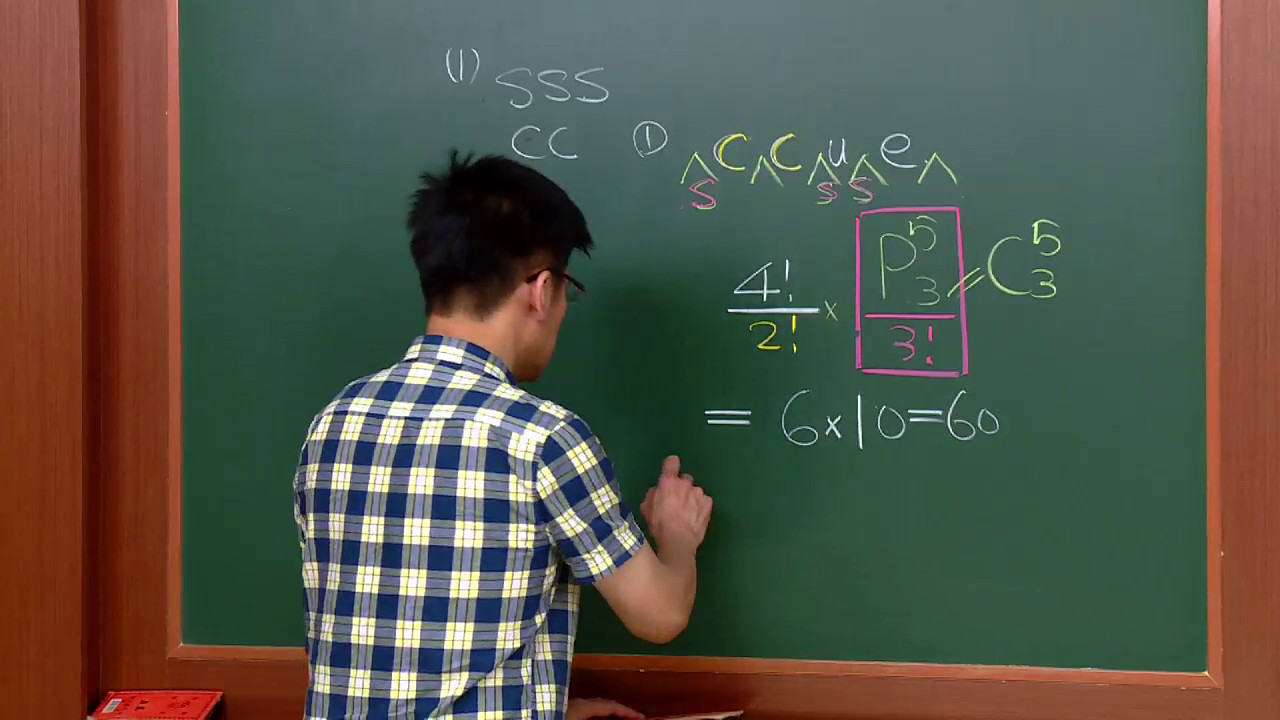 (1) SSS
CC ① ∧C∧C∧u∧e∧
S S S
4!/2! × P⁵₃/3! = C⁵₃
= 6×10=60